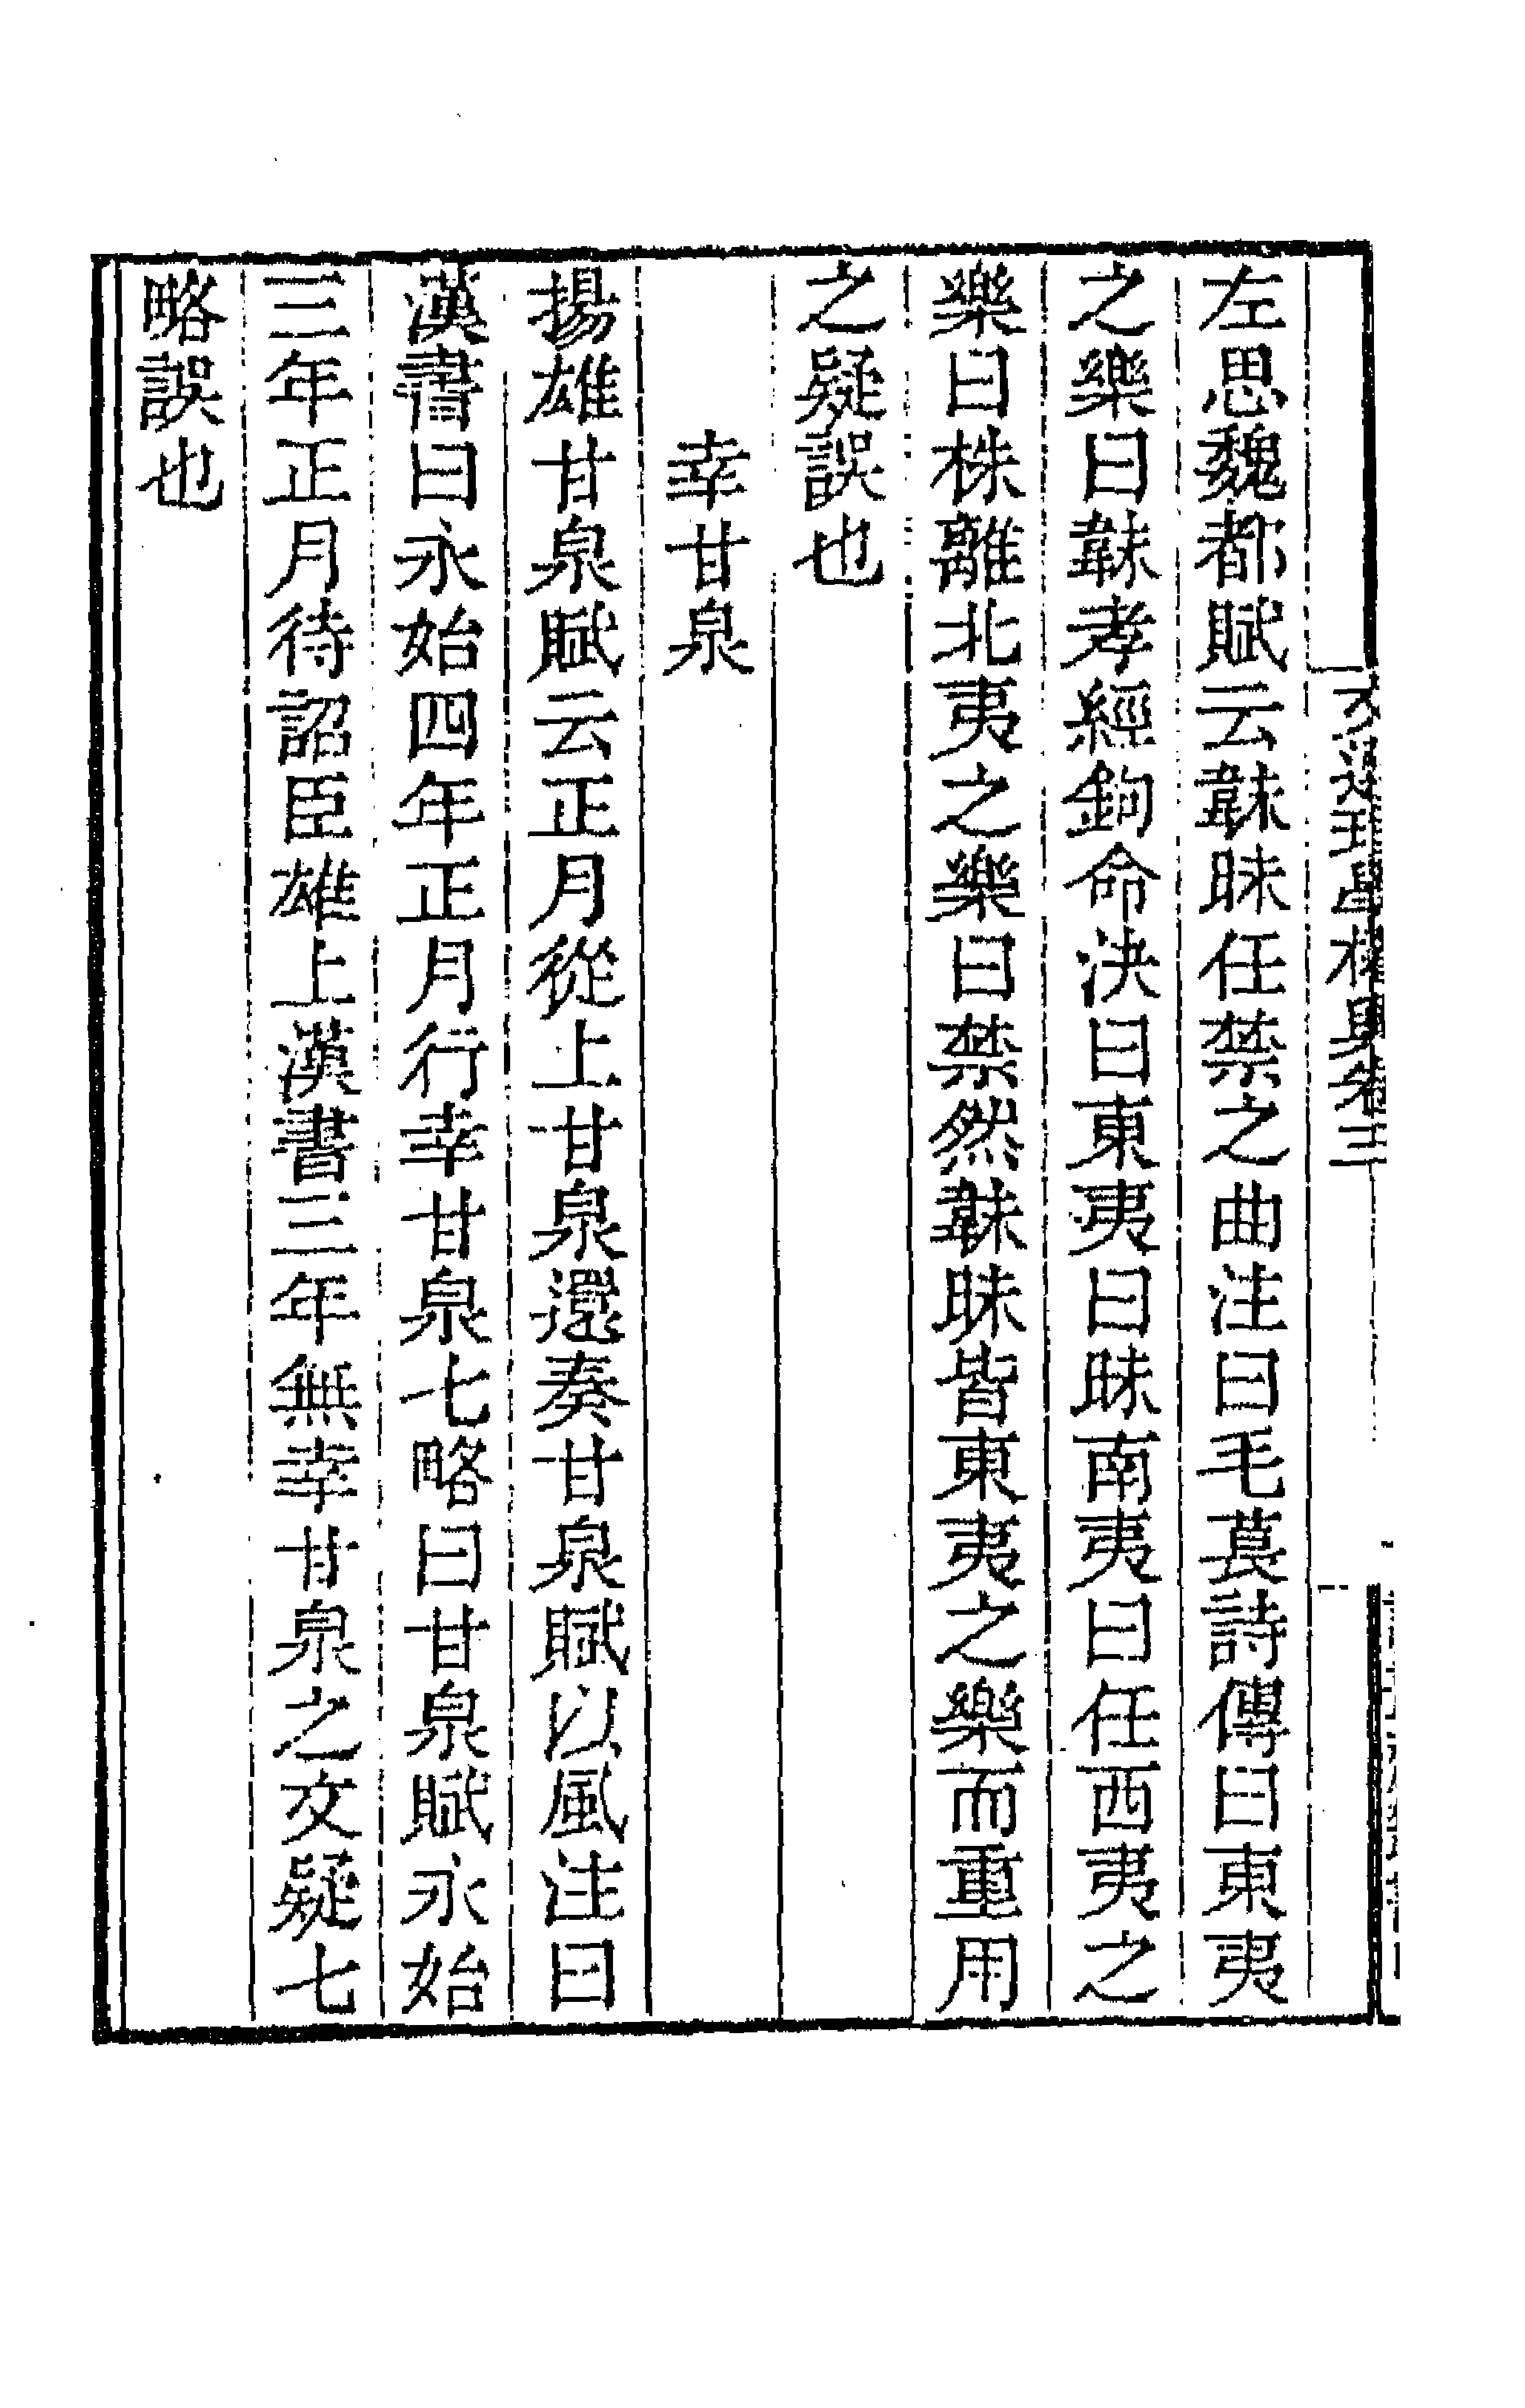 左思魏都賦云韎昧任禁之曲注曰毛萇詩傳曰東夷
之樂曰韎孝經鉤命決曰東夷曰昧南夷曰任西夷之
樂曰株離北夷之樂曰禁然韎昧皆東夷之樂而重用
之疑誤也
幸甘泉
揚雄甘泉賦云正月從上甘泉還奏甘泉賦以風注曰
漢書曰永始四年正月行幸甘泉七略曰甘泉賦永始
三年正月待詔臣雄上漢書三年無幸甘泉之文疑七
略誤也